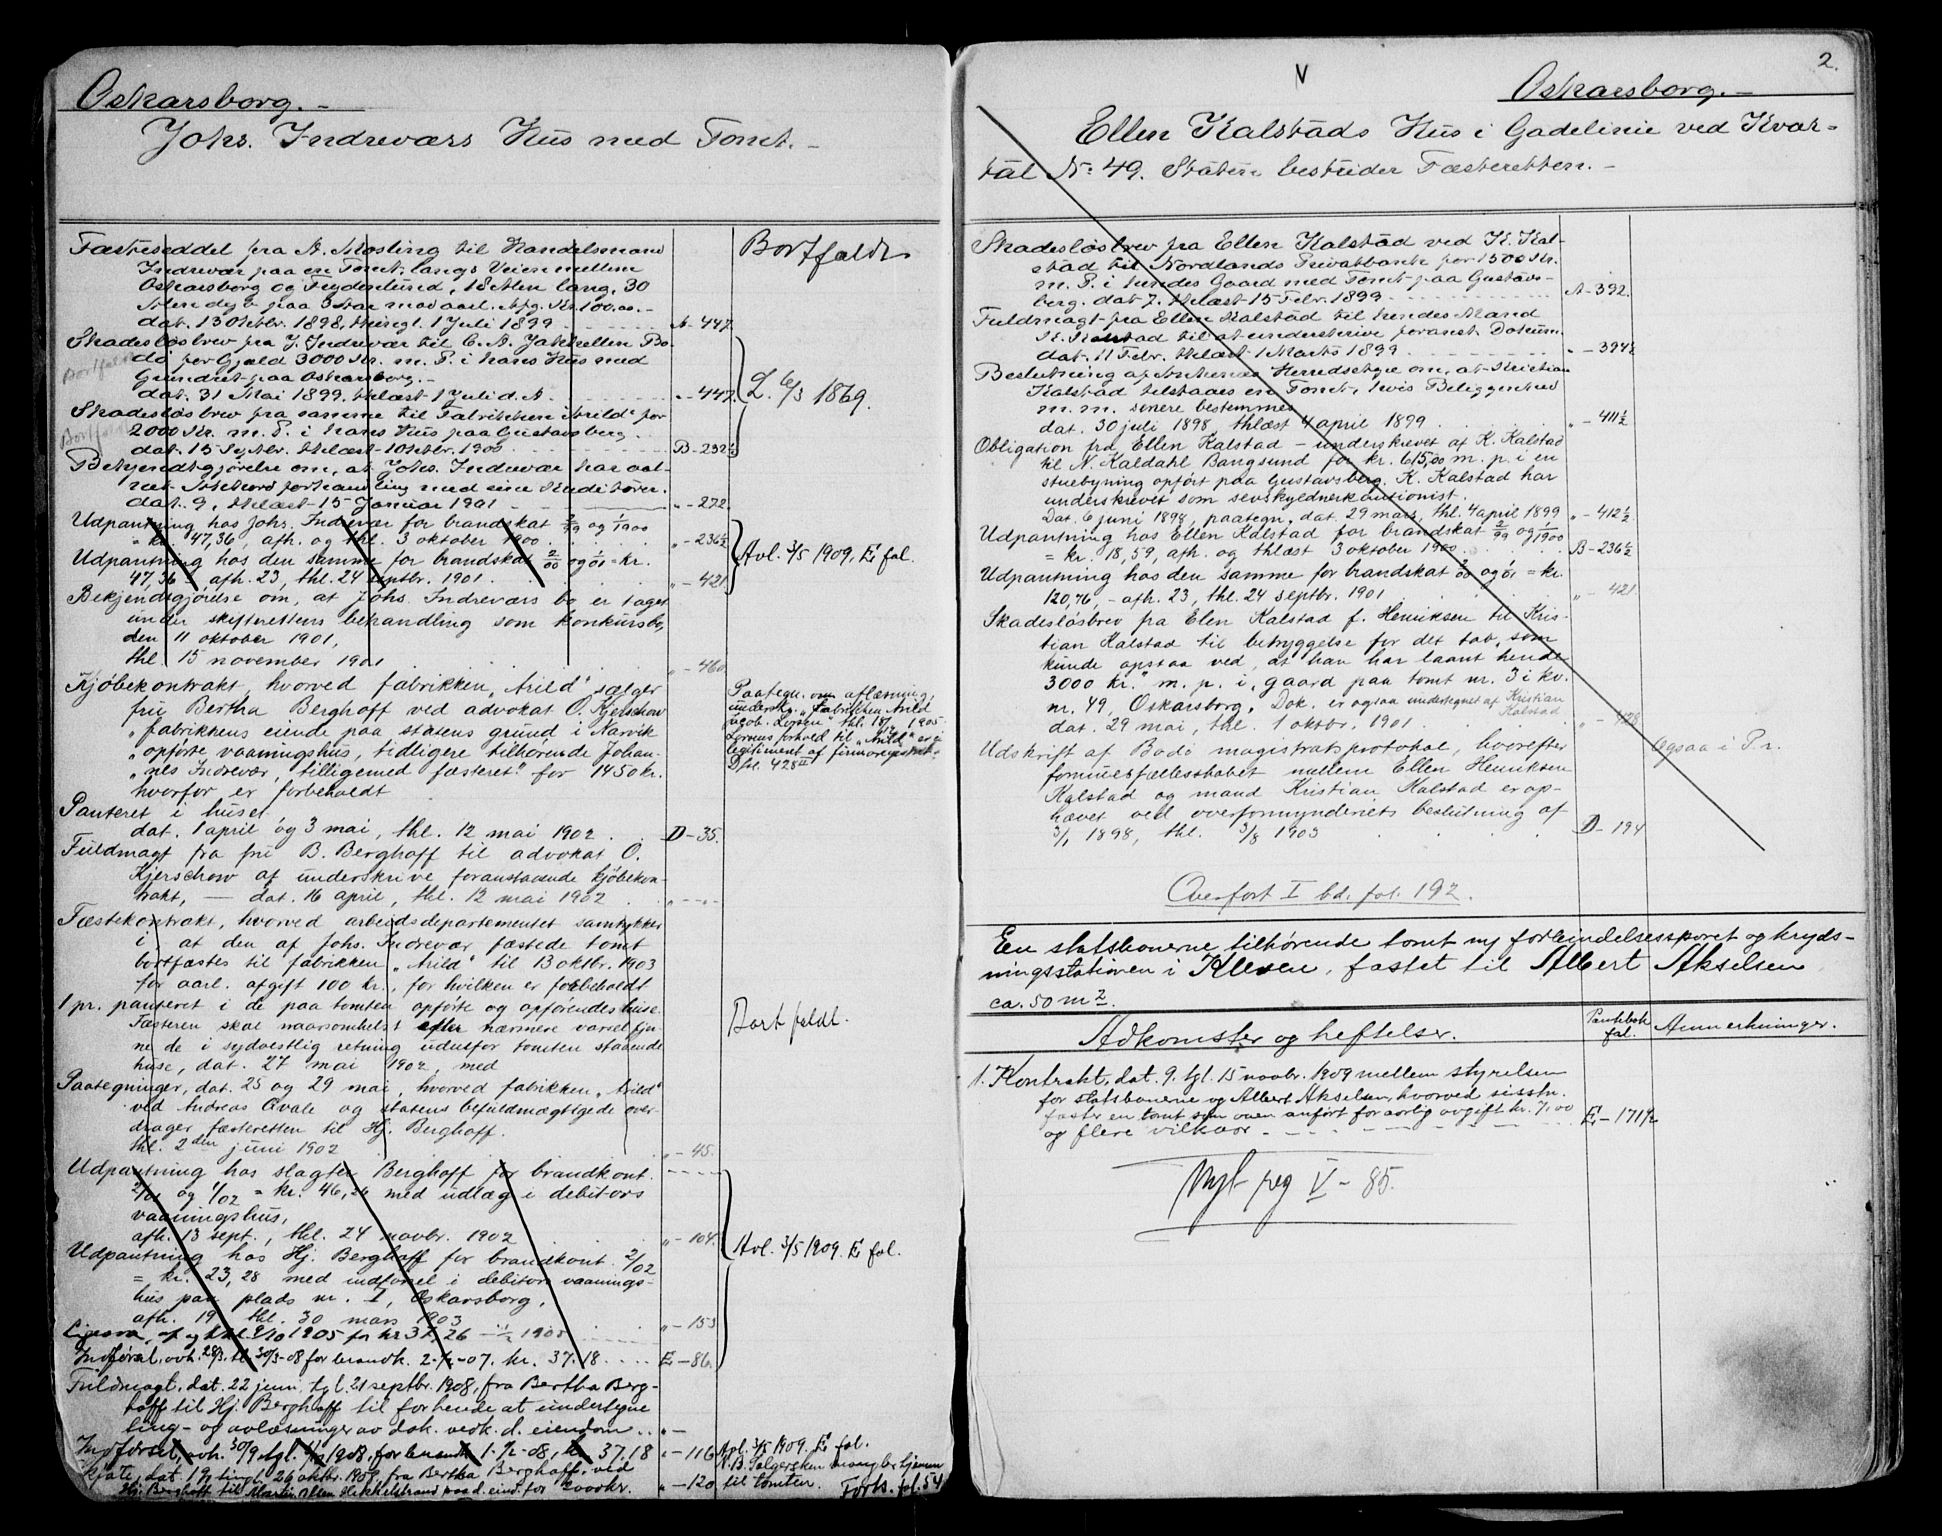 Oskarsborg.-
Johs. Indreværs Hus med Tomt.-
Fæsteseddel fra A. Mosling til Handelsmand
Indrevær paa en Tomt langs Veien mellem
Oskarsborg og Frydenlund, 18 Alen lang, 30
Alen dyb paa 3 Aar mod aarl. Afg. Kr. 100,00.-
dat. 13 Oktbr. 1898, thingl. 1 Juli 1899
A-447.
Bortfaldt
Skadesløsbrev fra J. Indrevær til C. A. Jakhellen Bo-
dø for Gjæld 3000 Kr. m. P. i hans Hus med
Grundret paa Oskarsborg.-
dat. 31 Mai 1899, thlæst 1 Juli d. A.
"-447.
Skadesløsbrev fra samme til Fabrikken "Arild" for
2000 Kr. m. P. i hans Hus paa Gustavsberg.
dat. 15 Septbr. thlæst 10 ktbr. 1900
B-232½
L. 6/3 1869.
Bekjendtgjørelse om, at Johs. Indrevær har aab-
net Akkordforhandling med sine Kreditorer.
dat. 9, thlæst 15 Januar 1901
"-272.
Udpantning hos Johs. Indrevær for brandskat 2/99 og 1/1900
= kr. 47,36, afh. og thl. 3 oktober 1900.
"-236½
Udpantning hos den samme for brandskat 2/00 og 1/01 = kr.
47,36 - afh. 23, thl. 24 septbr. 1901.
"-421
Avl. 3/5 1909, E, fol.
Bekjendtgjørelse om, at Johs. Indreværs bo er taget
under skifterettens behandling som konkursbo,
den 11 oktober 1901,
thl. 15 november 1901
"-460
Kjøbekontrakt, hvorved fabrikken "Arild" sælger
fru Bertha Berghoff ved advokat O. Kjerschow
"fabrikkens eiende paa statens grund i Narvik
"opførte vaaningshus, tidligere tilhørende Johan-
"nes Indrevær, tilligemed fæsteret" for 1450 kr.
hvorfor er forbeholdt
Panteret i huset
dat. 1 april og 3 mai, thl. 12 mai 1902.
D-35.
Paategn. om aflæsning,
undersk. "Fabrikken Arild
Jacob Larsen" thl. 18/7 1905
Larsens forhold til "Arild" er ei
legitimeret af firmaregistret.
Dfol. 428
Fuldmagt fra fru B. Berghoff til advokat O.
Kjerschow at underskrive foranstaaende kjøbekon-
trakt, - dat. 16 april, thl. 12 mai 1902
"-"-
Fæstekontrakt, hvorved arbeidsdepartementet samtykker
i at den af Johs. Indrevær fæstede tomt
bortfæstes til fabrikken "Arild" til 13 oktbr. 1903
for aarl. afgift 100 kr., for hvilken er forbeholdt
1 pr. panteret i de paa tomten opførte og opførendes huse.
Fæsteren skal naarsomhelst efter nærmere varsel fjer-
ne de i sydvestlig retning udenfor tomten staaende
huse, dat. 27 mai 1902, med
Bortfaldt.
Paategninger, dat. 25 og 29 mai, hvorved fabrikken "Arild"
ved Andreas Qvale og statens befuldmægtigede over-
drager fæsteretten til Hj. Berghoff.
thl. 2den juni 1902
"-45.
Udpantning hos slagter Berghoff for brandkont.
2/01 og 1/02 = kr. 46,26 med udlæg i debitors
vaaningshus,
afh. 13 sept., thl. 24 novbr. 1902
"-104.
Udpantning hos Hj. Berghoff for brandkont. 2/02
= kr. 23,28 med indførsel i debitors vaanings-
hus paa plads nr. I, Oskarsborg,
afh. 19 thl. 30 mars 1903
"-153
Avl. 3/5 1909. E, fol.
Indførsel, avh. 28/3, tl. 30/3-08 for brandk. 2-1/2-07, kr. 37.18
E-86.
Fuldmagt, dat. 22 juni, tgl. 21 septbr. 1908, fra Bertha Berg-
hoff til Hj. Berghoff til for hende at undertegne
ting- og avlæsninger av dok. vedk. d. eiendom
"-
Indførsel, avh. 30/9, tgl. 1908, for brandk. 1-1/2-08, kr. 37.18
"-116
Avl. 3/5 1909. E, fol.
Skjøte, dat. 19, tingl. 26 oktbr. 1908, fra Bertha Berghoff, ved
Hj. Berghoff til Martin Olsen Hekkelstrand paa d. eiend. for 2000 kr.
"-120
N.B. Sælgersken mangler hjemm
til tomten. Forts. fol. 54
2.
V
Oskarsborg.-
Ellen Kalstads Hus i Gadelinie ved Kvar-
tal No: 49. Staten bestrider Fæsteretten.-
Skadesløsbrev fra Ellen Kalstad ved K. Kal-
stad til Nordlands Privatbank for 1500 Kr.
m. P. i hendes Gaard med Tomt paa Gustavs-
berg. dat. 7. thlæst 15 Febr. 1899
A-392.
Fuldmagt fra Ellen Kalstad til hendes Mand
K. Kalstad til at underskrive foranst. Dokum.
dat. 11 Febr. thlæst 1 Marts 1899
"-394½
Beslutning af Ankenes Herredstyre om, at Kristian
Kalstad tilstaaes en Tomt, hvis Beliggenhed
m. m. senere bestemmes
dat. 30 juli 1898, thlæst 4 april 1899
"-411½
Obligation fra Ellen Kalstad - underskrevet af K. Kalstad
til N. Kaldahl Bangsund for kr. 615,00 m. p. i en
stuebygning opført paa Gustavsberg. K. Kalstad har
underskrevet som selvskyldnerkautionist.
Dat. 6 juni 1898, paategn. dat. 29 mars, thl. 4 april 1899
"-412½
Udpantning hos Ellen Kalstad for brandskat 2/99 og 1/1900
= kr. 18,59, afh. og thlæst 3 oktober 1900
B-236½
Udpantning hos den samme for brandskat 2/00 og 1/01 = kr.
120,76, - afh. 23, thl. 24 septbr. 1901
"-421
Skadesløsbrev fra Elen Kalstad f. Henriksen til Kris-
tian Kalstad til betryggelse for det tab, som
kunde opstaa ved, at han har laant hende
3000 kr." m. p. i "gaard paa tomt nr. 3 i kv.
nr. 49, Oskarsborg". Dok. er ogsaa undertegnet af Kristian
Kalstad
dat. 29 mai, thl. 1 oktbr. 1901
Udskrift af Bodø magistrats protokol, hvorefter
formuesfællesskabet mellem Ellen Henriksen
Kalstad og mand Kristian Kalstad er op-
hævet ved overformynderiets beslutning af
3/1 1898, thl. 3/8 1903
D-194
Ogsaa i P. r.
Overført I bd. fol. 192.
En statsbanerne tilhørende tomt ny forbindelsessporet og kryds-
ningsstationen i Kleven, fæstet til Albert Akselsen
ca. 50 m2.
Adkomster og heftelser.
Pantebok
fol.
Anmerkninger.
1. Kontrakt, dat. 9. tgl. 15 novbr. 1909 mellem styrelsen
for statsbanerne og Albert Akselsen, hvorved sisstn.
fæster en tomt som oven anført for aarlig avgift kr. 7,00
og flere vilkaar
E-171½
Nyt reg V-85.